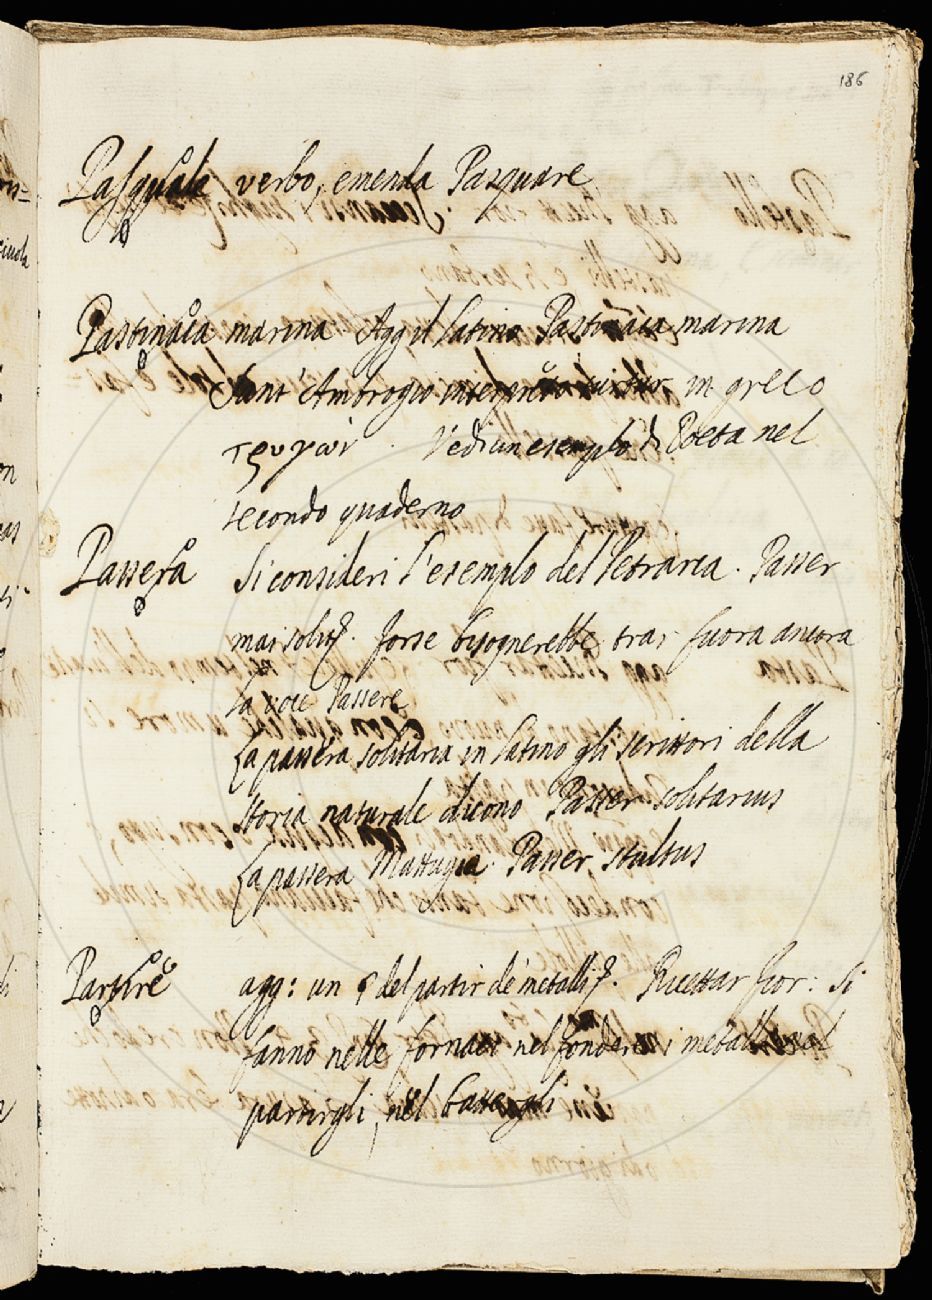 186
Pasquale verbo, emenda Pasquare
Pastinaca marina Agg il latino Pastinaca marina
Sant' Ambrogio in greco
τρυγών. Vedi un esemplo di Poeta nel
secondo quaderno
Passera Si consideri l'esemplo del Petrarca. Passer
mai solit. forse bisognerebbe trar fuora ancora
la voce Passere
La passera solitaria in latino gli scrittori della
storia naturale dicono Passer solitarius
La passera Mattugia Passer stultus
Partire agg: un § del partir de metalli. Ricettar fior: Si
fanno nelle fornaci nel fonder i metalli nel
partirgli, nel